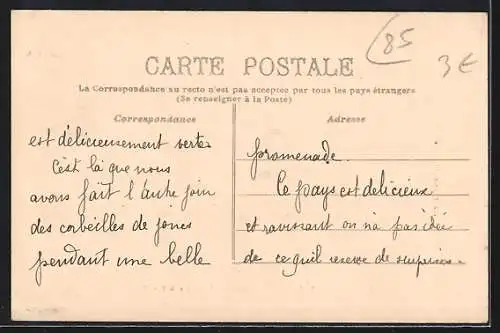 85
3€
CARTE POSTALE
La Correspondance au recto n'est pas acceptée par tous les pays étrangers
(Se renseigner à la Poste)
Correspondance
Adresse
est délicieusement verte
C'est là que nous
avons fait l'autre join
des corbeilles de joncs
pendant une belle
promenade.
Ce pays est délicieux
et ravissant on n'a pas idée
de ce qu'il reserve de surprises.